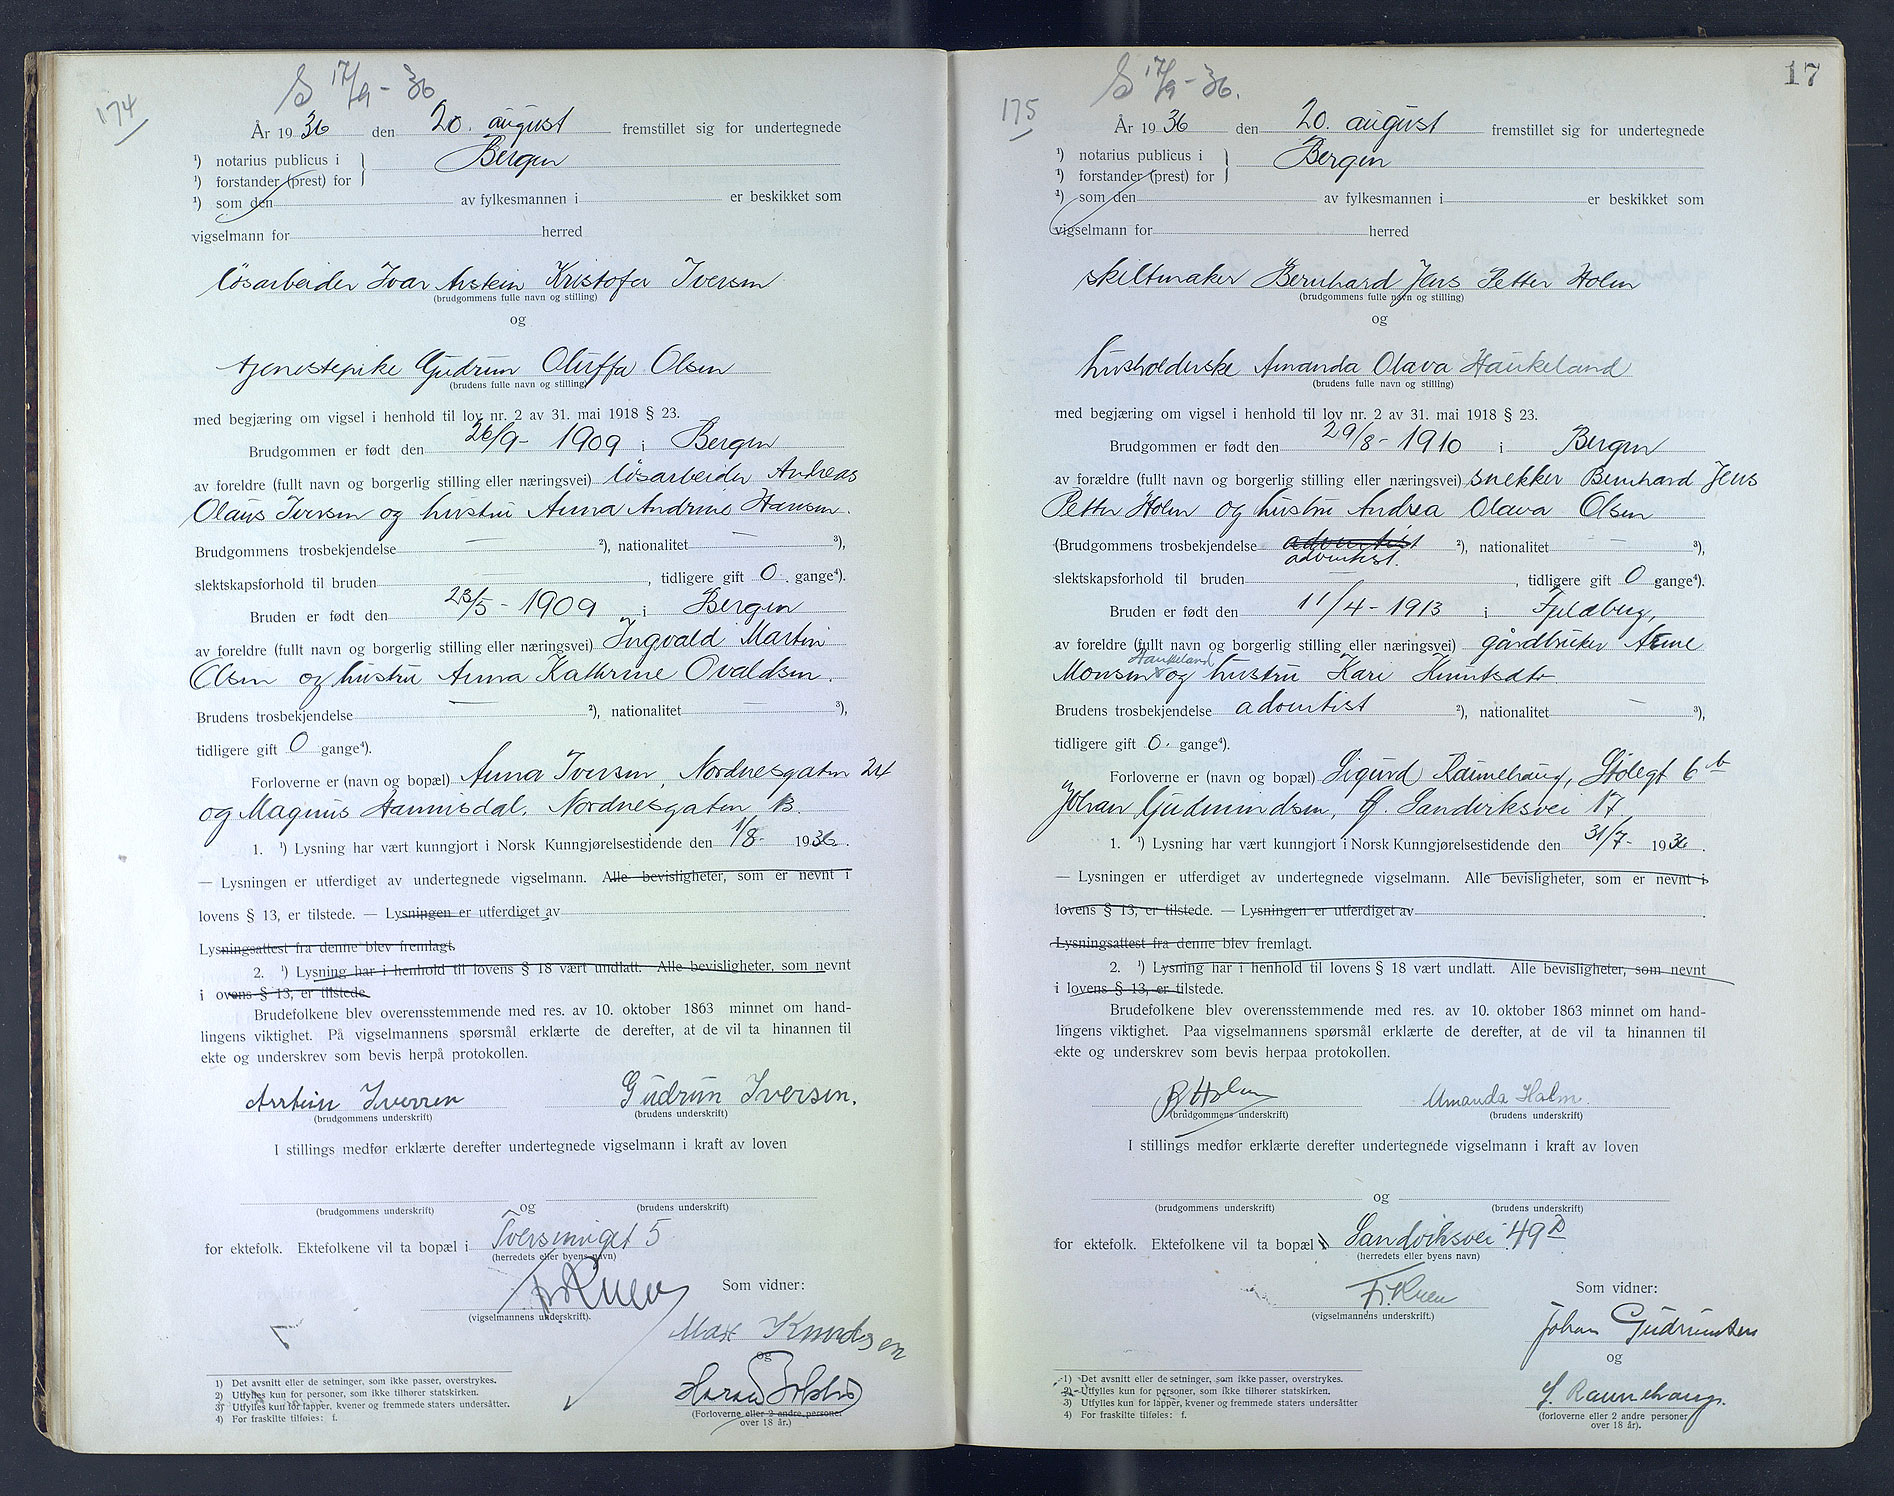 174
S 17/9 - 36
År 1936 den 20. august fremstillet sig for undertegnede
¹) notarius publicus i } Bergen
¹) forstander (prest) for
¹) som den av fylkesmannen i er beskikket som
vigselmann for herred
løsarbeider Ivar Arstein Kristofer Iversen
(brudgommens fulle navn og stilling)
og
tjenestepike Gudrun Oluffa Olsen
(brudens fulle navn og stilling)
med begjæring om vigsel i henhold til lov nr. 2 av 31. mai 1918 § 23.
Brudgommen er født den 26/9 - 1909 i Bergen
av foreldre (fullt navn og borgerlig stilling eller næringsvei) løsarbeider Andreas
Olaus Iversen og hustru Anna Andrine Hansen.
Brudgommens trosbekjendelse — ²), nationalitet — ³),
slektskapsforhold til bruden — , tidligere gift 0. gange⁴).
Bruden er født den 23/5 - 1909 i Bergen
av foreldre (fullt navn og borgerlig stilling eller næringsvei) Ingvald Martin
Olsen og hustru Anna Kathrine Ovaldsen.
Brudens trosbekjendelse — ²), nationalitet — ³),
tidligere gift 0 gange⁴).
Forloverne er (navn og bopæl) Anna Iversen, Nordnesgaten 24
og Magnus Hannisdal, Nordnesgaten
1. ¹) Lysning har vært kunngjort i Norsk Kunngjørelsestidende den 1/8 - 1936.
— Lysningen er utferdiget av undertegnede vigselmann. Alle bevisligheter, som er nevnt i
lovens § 13, er tilstede. — Lysningen er utferdiget av
Lysningsattest fra denne blev fremlagt.
2. ¹) Lysning har i henhold til lovens § 18 vært undlatt. Alle bevisligheter, som nevnt
i lovens § 13, er tilstede.
Brudefolkene blev overensstemmende med res. av 10. oktober 1863 minnet om hand-
lingens viktighet. På vigselmannens spørsmål erklærte de derefter, at de vil ta hinannen til
ekte og underskrev som bevis herpå protokollen.
Arstein Iversen Gudrun Iversen.
(brudgommens underskrift) (brudens underskrift)
I stillings medfør erklærte derefter undertegnede vigselmann i kraft av loven
og
(brudgommens underskrift) (brudens underskrift)
for ektefolk. Ektefolkene vil ta bopæl i 5
(herredets eller byens navn)
Som vidner:
(vigselmannens underskrift).
Max Knudsen
og
(Forloverne eller 2 andre personer
over 18 år.)
1) Det avsnitt eller de setninger, som ikke passer, overstrykes.
2) Utfylles kun for personer, som ikke tilhører statskirken.
3) Utfylles kun for lapper, kvener og fremmede staters undersåtter.
4) For fraskilte tilføies: f.
17
175
S 17/9 - 36.
År 1936 den 20. august fremstillet sig for undertegnede
¹) notarius publicus i } Bergen
¹) forstander (prest) for
¹) som den av fylkesmannen i er beskikket som
vigselmann for herred
skiltmaker Bernhard Jens Petter Holm
(brudgommens fulle navn og stilling)
og
husholderske Amanda Olava Haukeland
(brudens fulle navn og stilling)
med begjæring om vigsel i henhold til lov nr. 2 av 31. mai 1918 § 23.
Brudgommen er født den 29/8 - 1910 i Bergen
av forældre (fullt navn og borgerlig stilling eller næringsvei) snekker Bernhard Jens
Petter Holm og hustru Andrea Olava Olsen
(Brudgommens trosbekjendelse adventist ²), nationalitet — ³),
adventist.
slektskapsforhold til bruden — , tidligere gift 0 gange⁴).
Bruden er født den 11/4 - 1913 i Fjeldberg,
av foreldre (fullt navn og borgerlig stilling eller næringsvei) gårdbruker Arne
Haukeland
Monsen og hustru Kari
Brudens trosbekjendelse adventist ²), nationalitet — ³),
tidligere gift 0. gange⁴).
Forloverne er (navn og bopæl) Sigurd Raunehaug, Stølegt 6 b
og Johan Gudmundsen, Sandviksvei 17.
1. ¹) Lysning har vært kunngjort i Norsk Kunngjørelsestidende den 31/7 - 1936.
— Lysningen er utferdiget av undertegnede vigselmann. Alle bevisligheter, som er nevnt i
lovens § 13, er tilstede. — Lysningen er utferdiget av
Lysningsattest fra denne blev fremlagt.
2. ¹) Lysning har i henhold til lovens § 18 vært undlatt. Alle bevisligheter, som nevnt
i lovens § 13, er tilstede.
Brudefolkene blev overensstemmende med res. av 10. oktober 1863 minnet om hand-
lingens viktighet. Paa vigselmannens spørsmål erklærte de derefter, at de vil ta hinannen til
ekte og underskrev som bevis herpaa protokollen.
B Holm Amanda Holm.
(brudgommens underskrift) (brudens underskrift)
I stillings medfør erklærte derefter undertegnede vigselmann i kraft av loven
og
(brudgommens underskrift) (brudens underskrift)
for ektefolk. Ektefolkene vil ta bopæl i Sandviksvei 49 D
(herredets eller byens navn)
Som vidner:
(vigselmannens underskrift.)
Johan Gudmundsen
og
S. Raunehaug.
(forloverne eller 2 andre personer
over 18 år).
1) Det avsnitt eller de setninger, som ikke passer, overstrykes.
2) Utfylles kun for personer, som ikke tilhører statskirken.
3) Utfylles kun for lapper, kvener og fremmede staters undersåtter
4) For fraskilte tilføies: f.